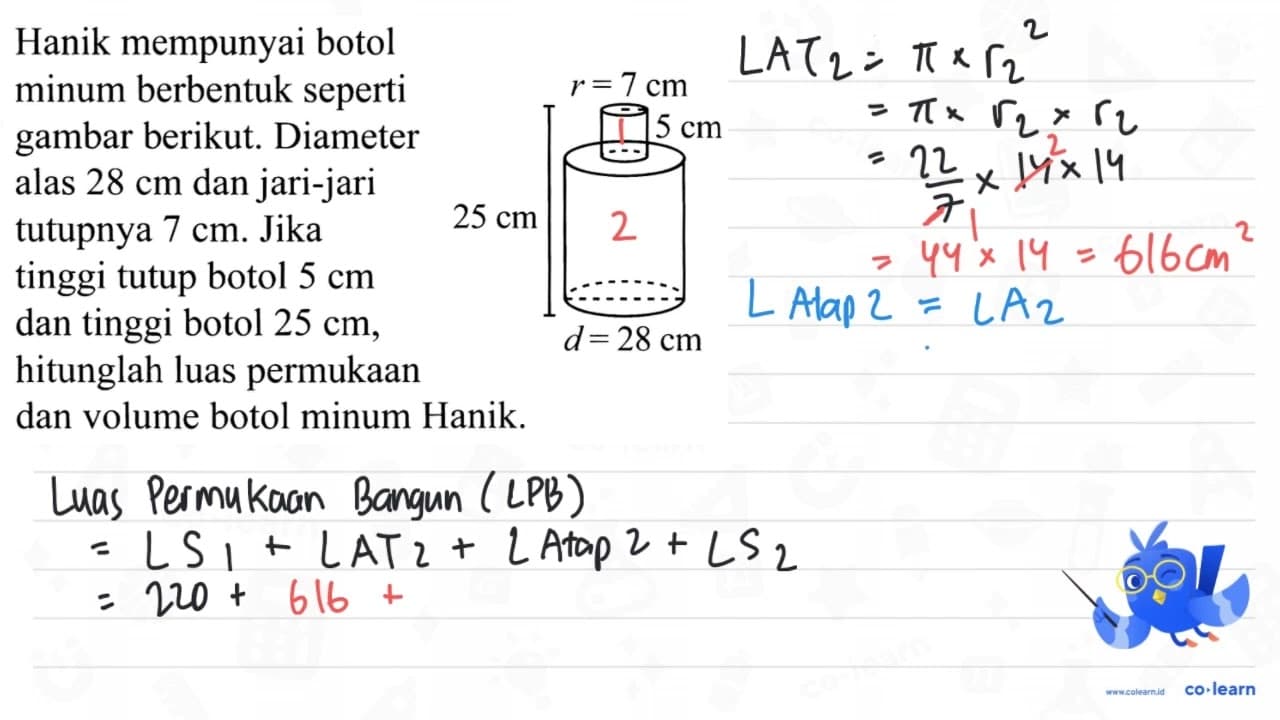 Hanik mempunyai botol
minum berbentuk seperti
gambar berikut. Diameter
alas 28 cm dan jari-jari
tutupnya 7 cm. Jika
tinggi tutup botol 5 cm
dan tinggi botol 25 cm,
hitunglah luas permukaan
dan volume botol minum Hanik.
r = 7 cm
1
5 cm
25 cm
2
d = 28 cm
LAT₂ = π × r₂²
= π × r₂ × r₂
= 22/7 × 14 × 14
2
1
= 44 × 14 = 616 cm²
L Atap 2 = LA₂
Luas Permukaan Bangun (LPB)
= LS₁ + LAT₂ + LAtap 2 + LS₂
= 220 + 616 +
www.colearn.id co·learn